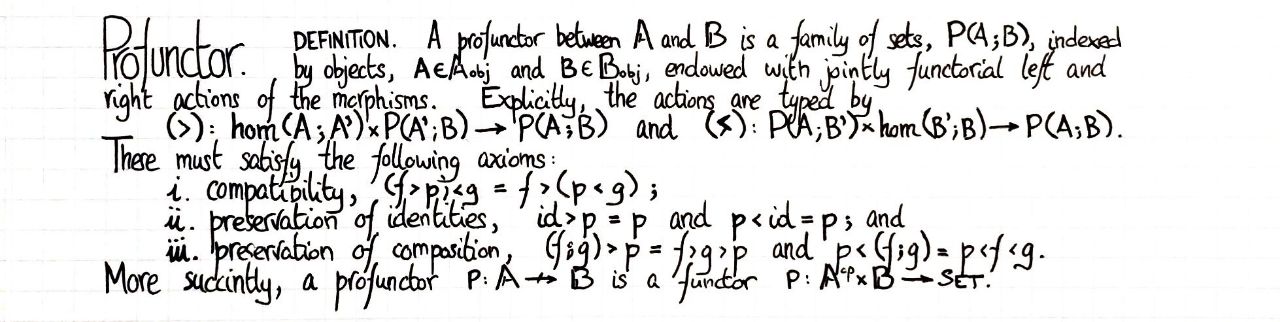 Profunctor. DEFINITION. A profunctor between 𝔸 and 𝔹 is a family of sets, P(A;B), indexed
by objects, A∈𝔸obj and B∈𝔹obj, endowed with jointly functorial left and
right actions of the morphisms. Explicitly, the actions are typed by
(>): hom(A;A')×P(A';B)→P(A;B) and (<): P(A;B')×hom(B';B)→P(A;B).
These must satisfy the following axioms:
i. compatibility, (f>p)<g = f>(p<g);
ii. preservation of identities, id>p = p and p<id = p; and
iii. preservation of composition, (f⨾g)>p = f>g>p and p<(f⨾g) = p<f<g.
More succintly, a profunctor P: 𝔸 ⇸ 𝔹 is a functor P: 𝔸ᵒᵖ×𝔹→SET.